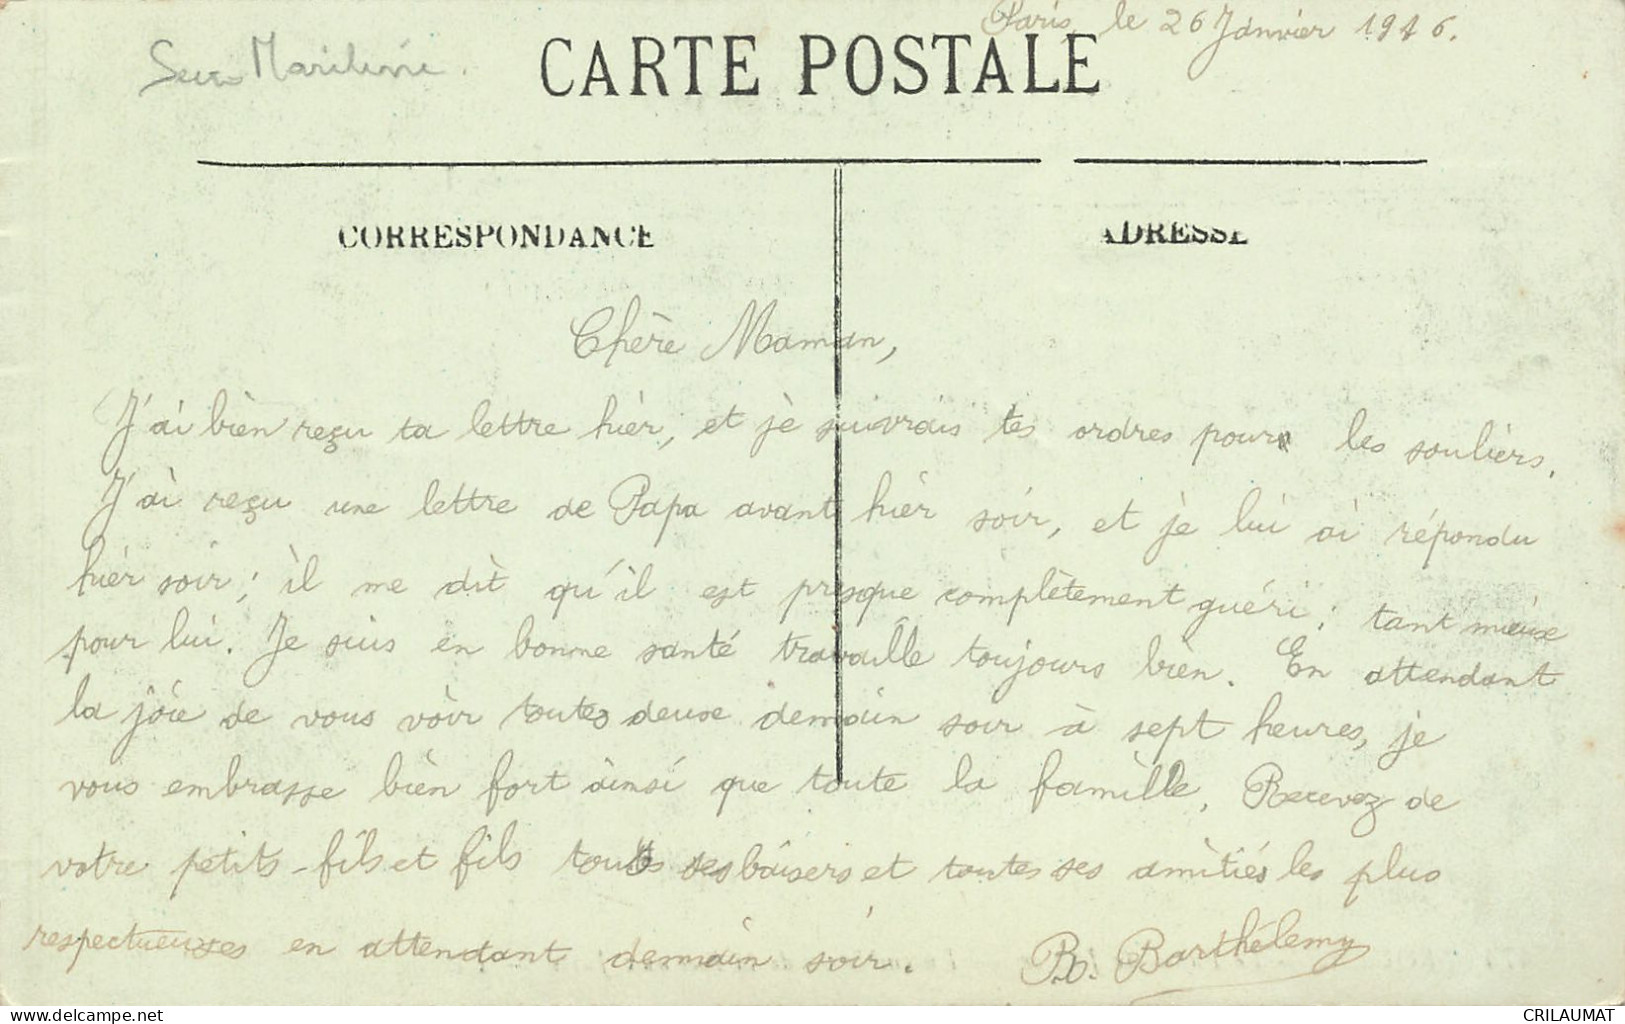 Paris, le 26 Janvier 1916.
CARTE POSTALE
CORRESPONDANCE
ADRESSE
Chère Maman,
J'ai bien reçu ta lettre hier, et je suivrais tes ordres pour les souliers.
J'ai reçu une lettre de Papa avant hier soir, et je lui ai répondu
hier soir; il me dit qu'il est presque complètement guéri; tant mieux
pour lui. Je suis en bonne santé travaille toujours bien. En attendant
la joie de vous voir toutes deux demain soir à sept heures, je
vous embrasse bien fort ainsi que toute la famille. Recevez de
votre petits-fils et fils tous ses baisers et toutes ses amitiés les plus
respectueuses en attendant demain soir. B. Barthélemy
CRILAUMAT